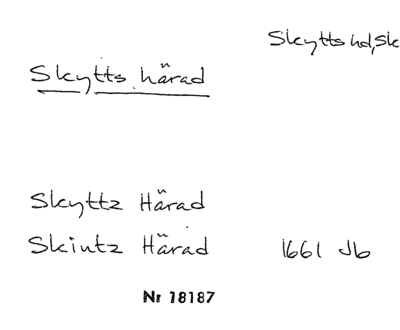 Skytts hd, Sk
Skytts härad
Skyttz Härad
Skintz Härad 1661 Jb
Nr 18187